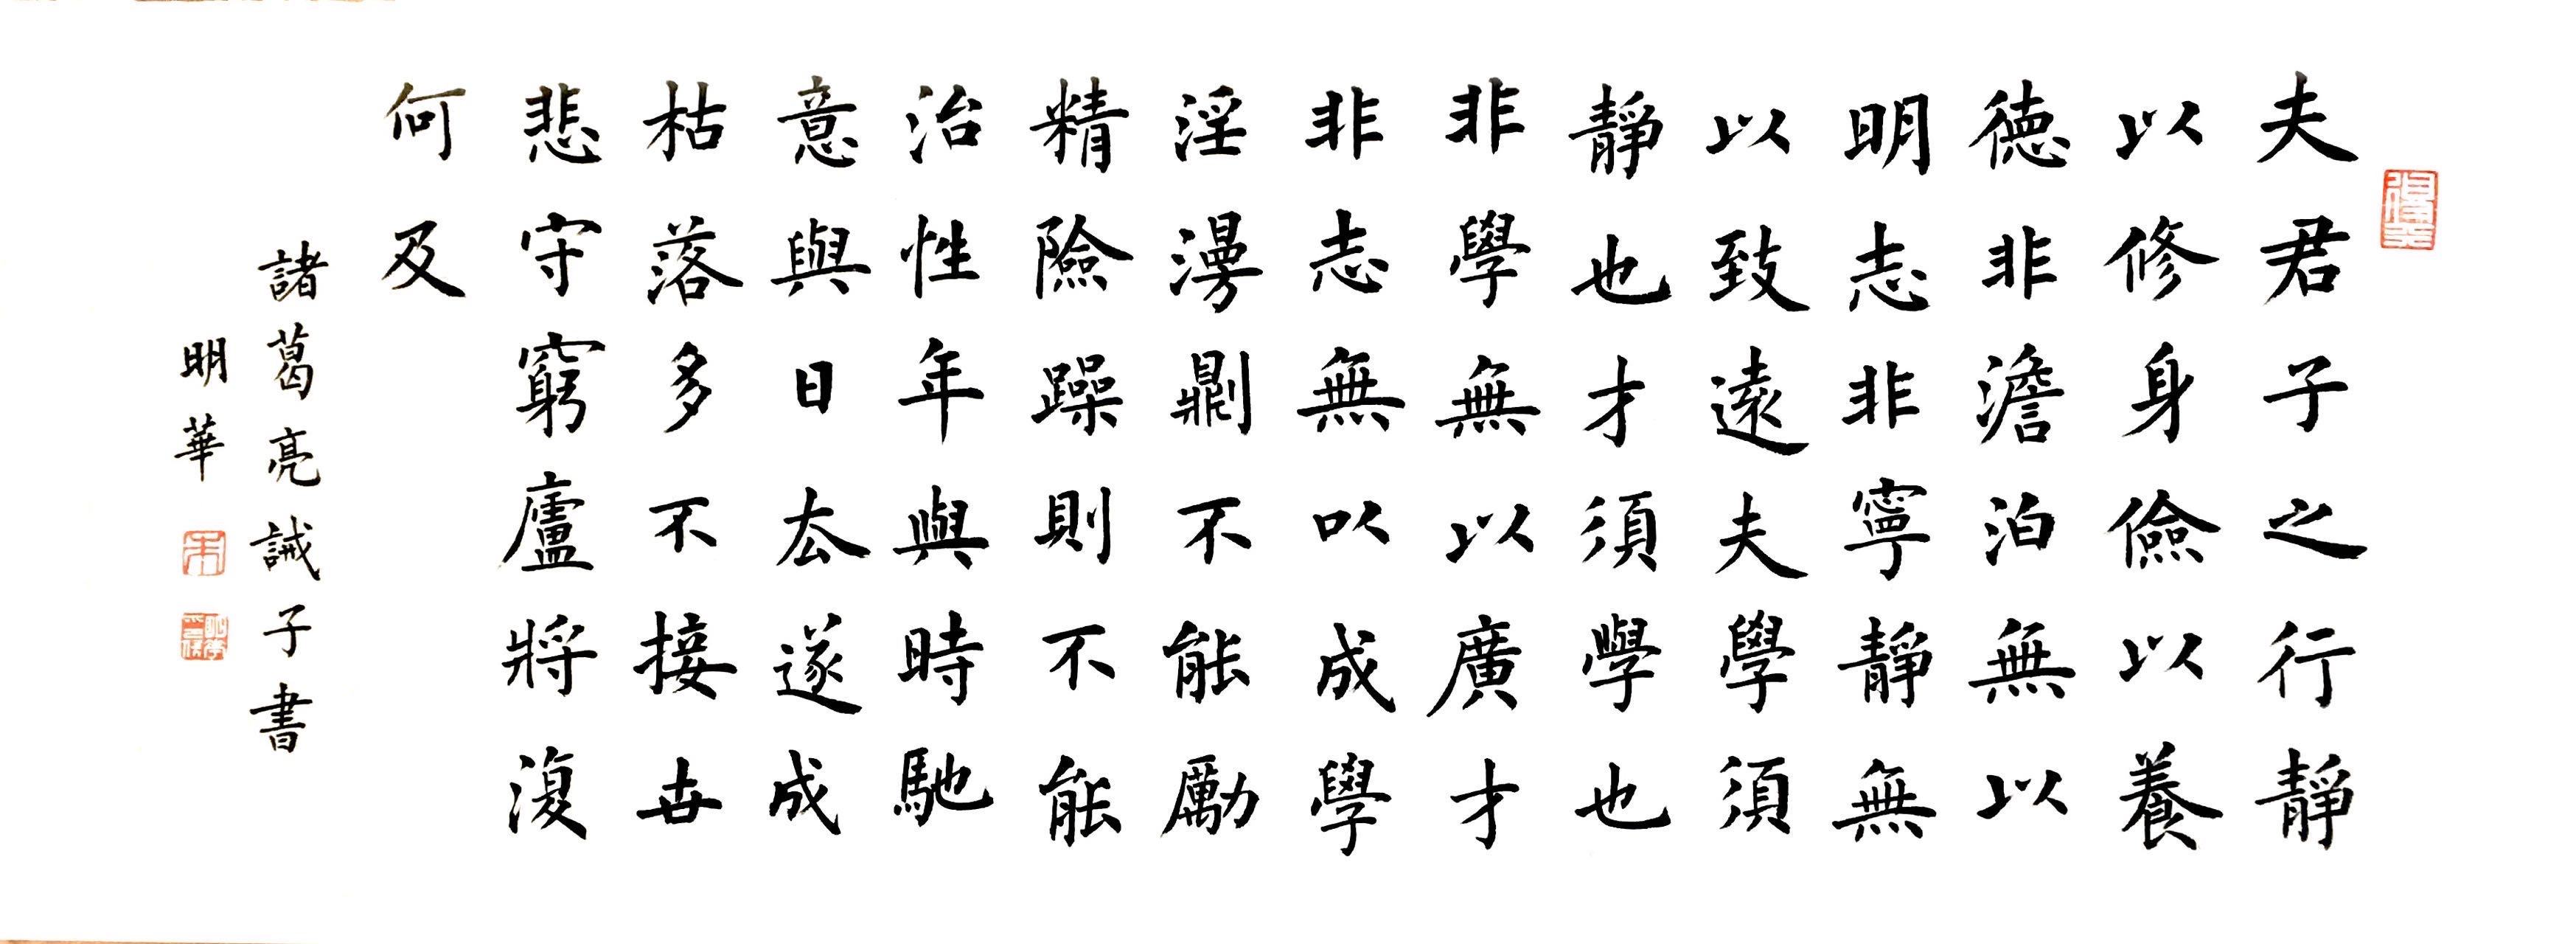 夫君子之行靜
以修身儉以養
德非澹泊無以
明志非寧靜無
以致遠夫學須
靜也才須學也
非學無以廣才
非志無以成學
淫漫劘不能勵
精險躁則不能
治性年與時馳
意與日去遂成
枯落多不接世
悲守窮廬將復
何及
諸葛亮誡子書
明華